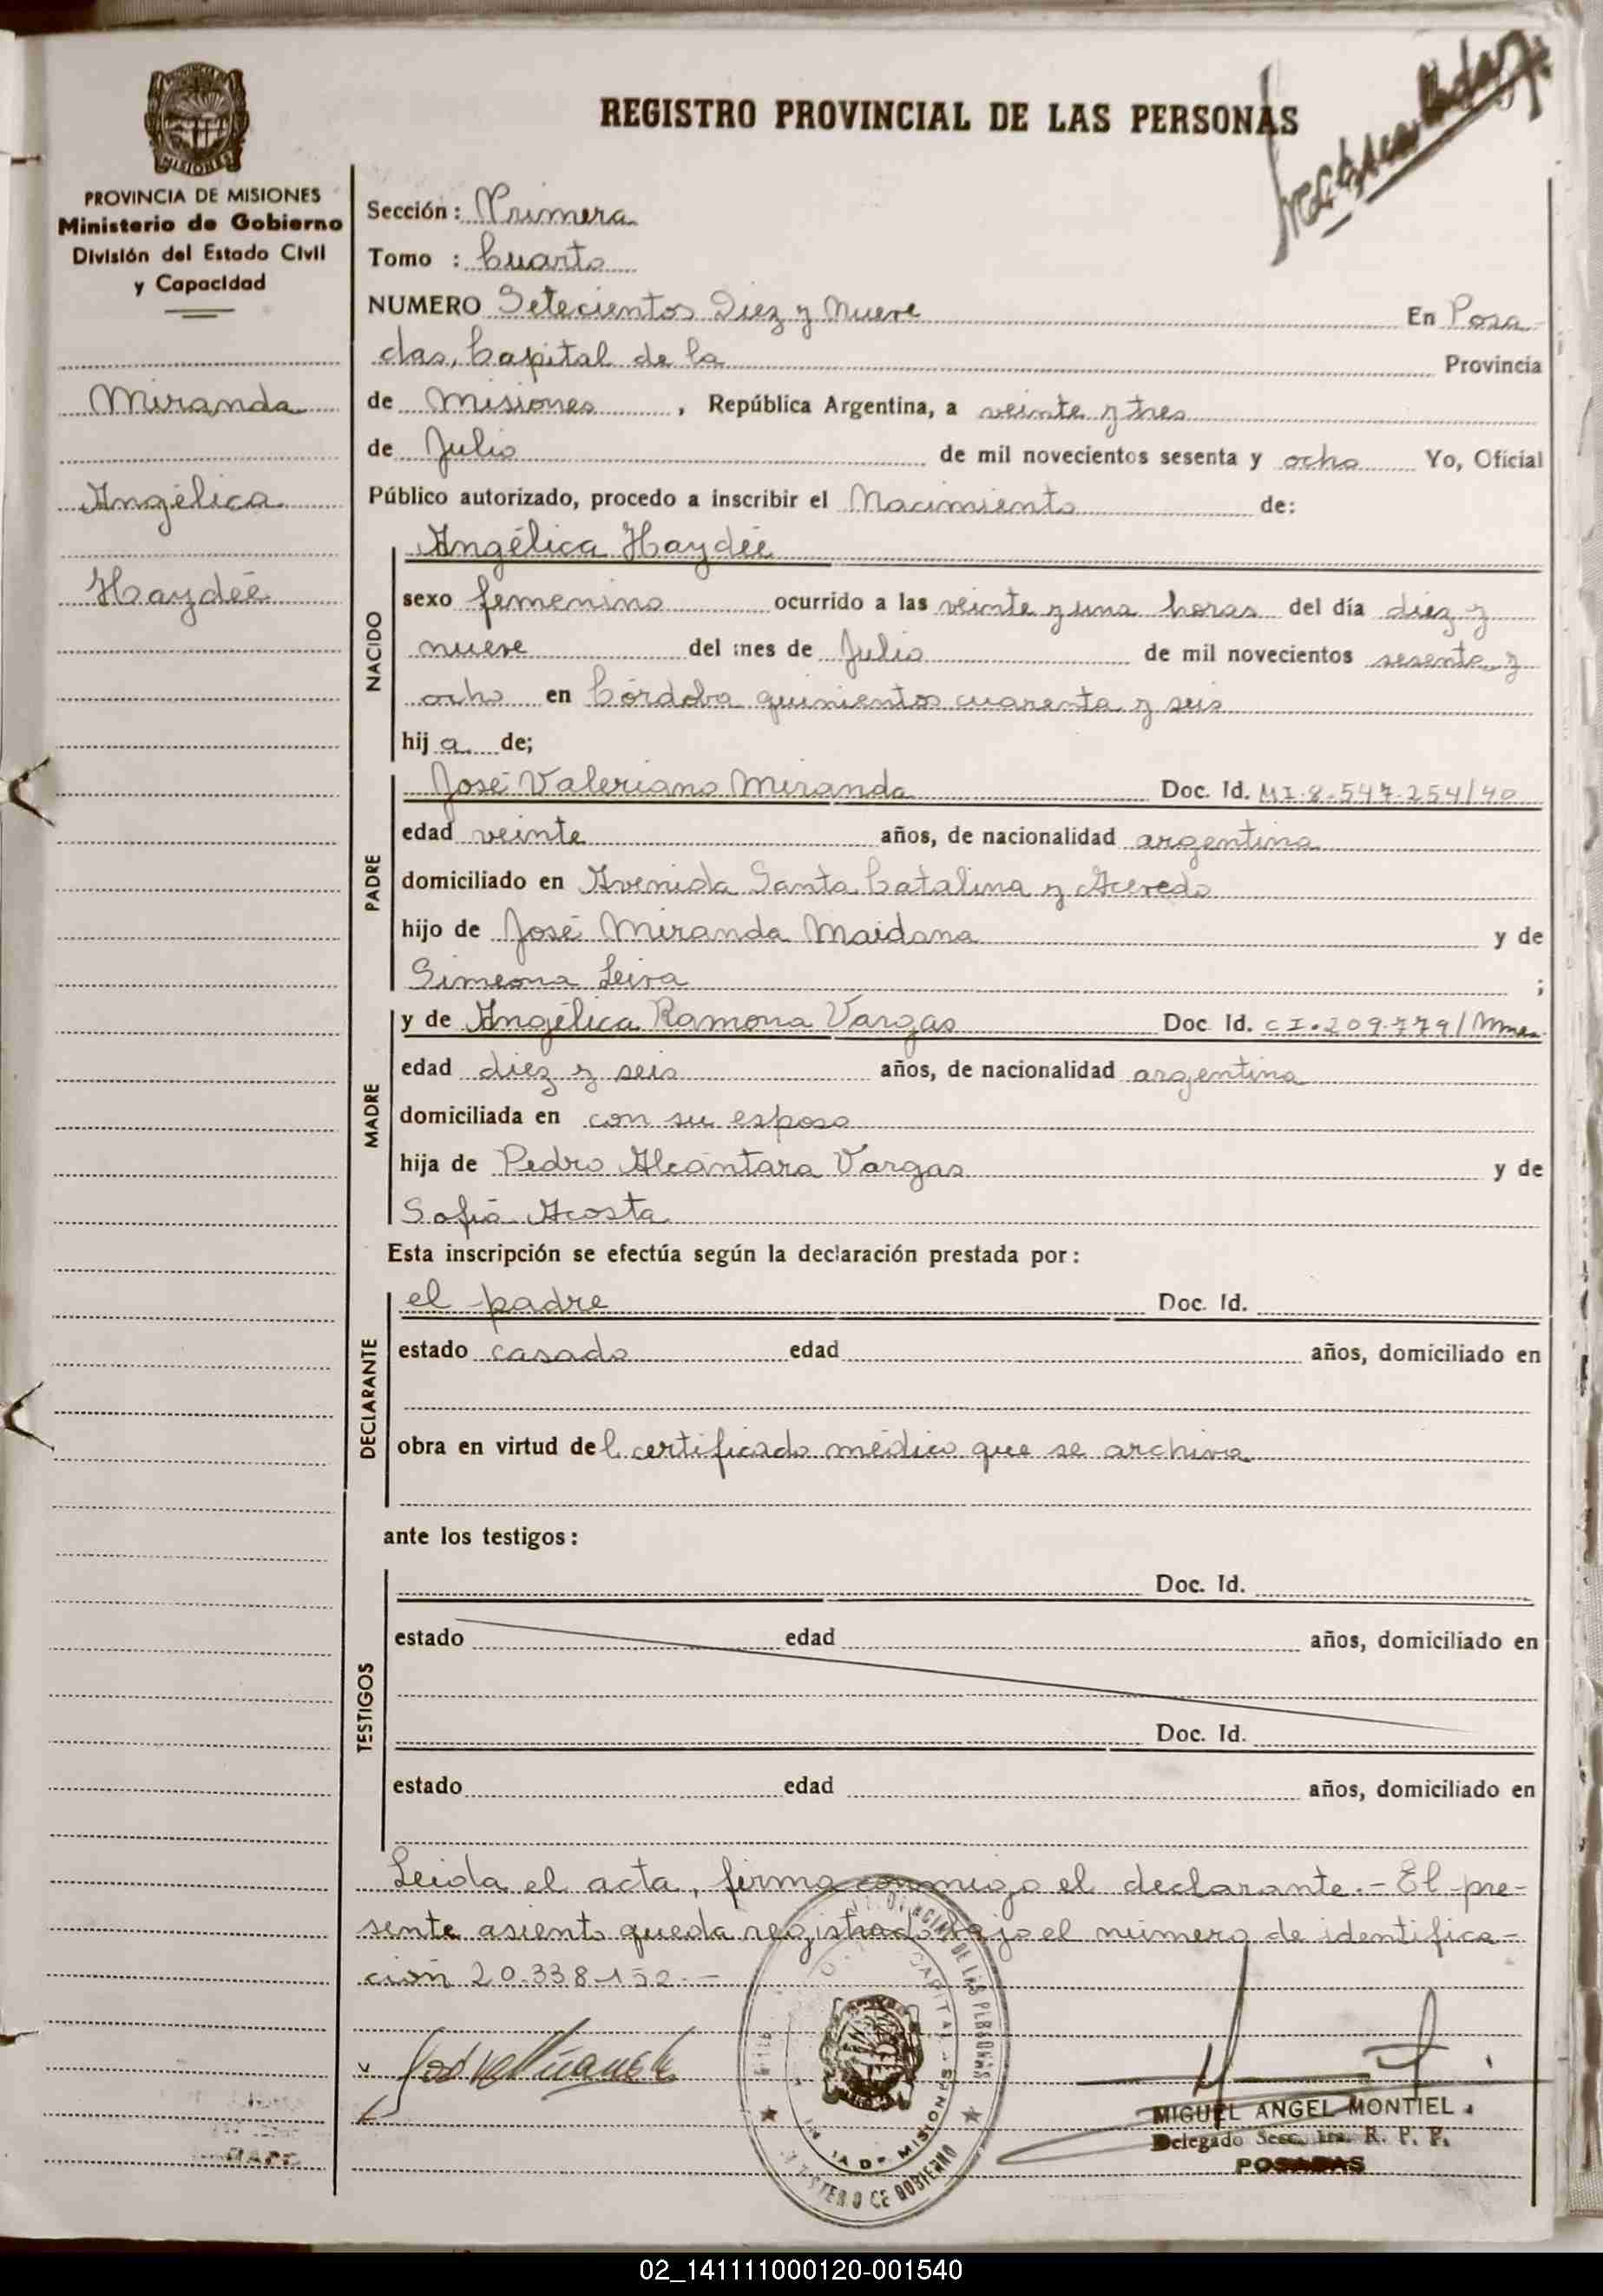 REGISTRO PROVINCIAL DE LAS PERSONAS
PROVINCIA DE MISIONES
Ministerio de Gobierno
División del Estado Civil
y Capacidad
Miranda
Angélica
Haydée
Sección: Primera
Tomo : Cuarto
NUMERO Setecientos Diez y Nueve En Posa-
das, Capital de la Provincia
de Misiones, República Argentina, a veinte y tres
de Julio de mil novecientos sesenta y ocho Yo, Oficial
Público autorizado, procedo a inscribir el Nacimiento de:
NACIDO
Angélica Haydée
sexo femenino ocurrido a las veinte y una horas del día diez y
nueve del mes de Julio de mil novecientos sesenta y
ocho en Córdoba quinientos cuarenta y seis
hij a de;
PADRE
José Valeriano Miranda Doc. Id. MI.8.547.254/40
edad veinte años, de nacionalidad argentina
domiciliado en Avenida Santa Catalina y Acevedo
hijo de José Miranda Maidana y de
Simeona Leiva ;
MADRE
y de Angélica Ramona Vargas Doc Id. CI.209.779/Mnes
edad diez y seis años, de nacionalidad argentina
domiciliada en con su esposo
hija de Pedro Alcántara Vargas y de
Sofía Acosta
Esta inscripción se efectúa según la declaración prestada por:
DECLARANTE
el padre Doc. Id.
estado casado edad años, domiciliado en
obra en virtud del certificado médico que se archiva
ante los testigos:
TESTIGOS
Doc. Id.
estado edad años, domiciliado en
Doc. Id.
estado edad años, domiciliado en
Leida el acta, firma conmigo el declarante.- El pre-
sente asiento queda registrado bajo el número de identifica-
ción 20.338.152.-
MIGUEL ANGEL MONTIEL
Delegado Secc. 1ra. R. P. P.
POSADAS
02_141111000120-001540